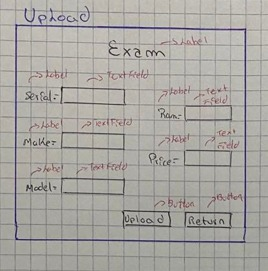 Upload
Exam → Label
Label TextField
Serial=
Label Text Field
Ram=
Label TextField
Make=
Label Text Field
Price=
Label TextField
Model=
Button Button
Upload Return